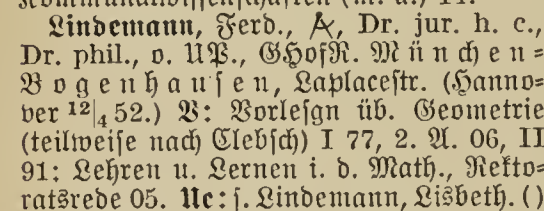 Lindemann, Ferd., Dr. jur. h. c.,
Dr. phil., o. UP., GHofR. München-
Bogenhausen, Laplacestr. (Hanno-
ver 12|4 52.) V: Vorlesgn üb. Geometrie
(teilweise nach Clebsch) I 77, 2. A. 06, II
91: Lehren u. Lernen i. d. Math., Rekto-
ratsrede 05. Ue: s. Lindemann, Lisbeth. ()